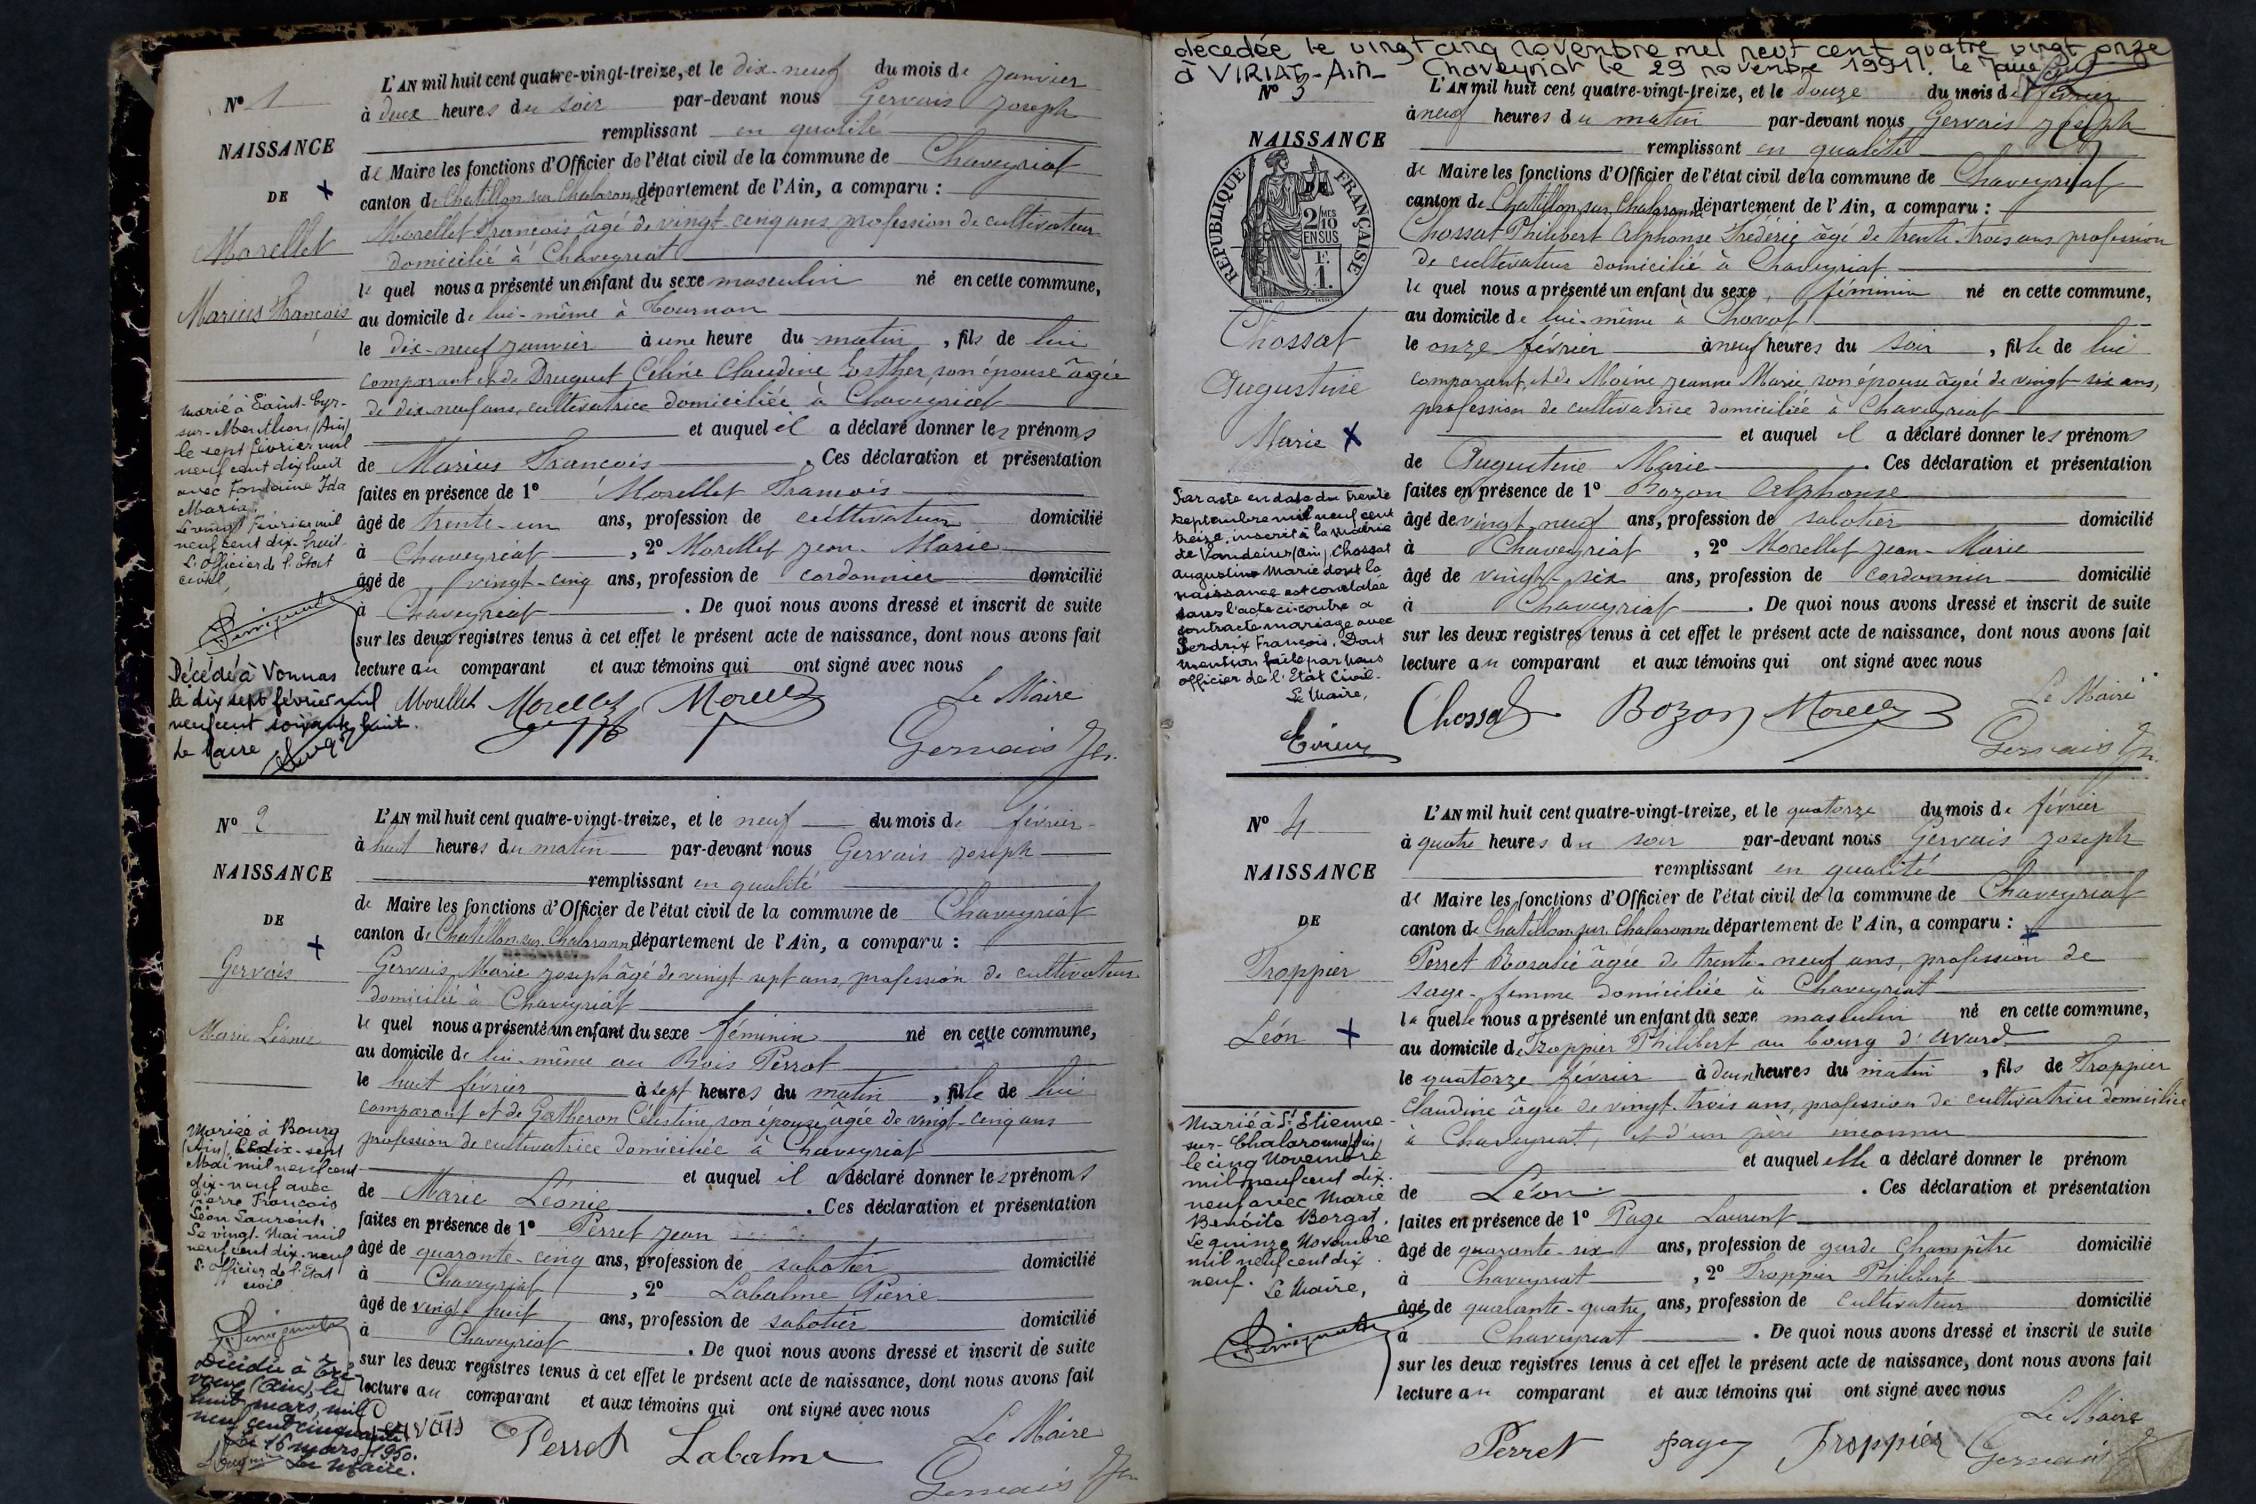 N° 1
NAISSANCE
DE
Morellet
Marius François
Marié à Saint-Cyr-
sur-Menthon (Ain)
le sept février mil
neuf cent dix huit
avec Fontaine Ida
Maria.
Le vingt février mil
neuf cent dix-huit.
L'officier de l'Etat
civil,
Décédé à Vonnas
le dix sept février mil
neuf cent soixante huit.
Le Maire
L'AN mil huit cent quatre-vingt-treize, et le dix-neuf du mois de janvier
à deux heures du soir par-devant nous Gervais Joseph
remplissant en qualité
de Maire les fonctions d'Officier de l'état civil de la commune de Chaveyriat
canton de Chatillon sur Chalaronne département de l'Ain, a comparu :
Morellet François âgé de vingt-cinq ans profession de cultivateur
domicilié à Chaveyriat
le quel nous a présenté un enfant du sexe masculin né en cette commune,
au domicile de lui-même à Tournon
le dix-neuf janvier à une heure du matin, fils de lui
comparant et de Druguet Céline Claudine Esther, son épouse âgée
de dix-neuf ans, cultivatrice domiciliée à Chaveyriat
et auquel il a déclaré donner les prénoms
de Marius François. Ces déclaration et présentation
faites en présence de 1° Morellet François
âgé de trente-un ans, profession de cultivateur domicilié
à Chaveyriat, 2° Morellet Jean-Marie
âgé de vingt-cinq ans, profession de cordonnier domicilié
à Chaveyriat. De quoi nous avons dressé et inscrit de suite
sur les deux registres tenus à cet effet le présent acte de naissance, dont nous avons fait
lecture au comparant et aux témoins qui ont signé avec nous
Morellet Morellet Morellet Le Maire
Gervais Jh.
N° 2
NAISSANCE
DE
Gervais
Marie Léonie
Mariée à Bourg
(Ain) le dix-sept
Mai mil neuf cent
dix-neuf avec
Pierre François
Léon Laurent.
Le vingt Mai mil
neuf cent dix-neuf
L'officier de l'Etat
civil
Décédée à Tré
voux (Ain), le
huit mars, mil
neuf cent cinquante
Le 16 mars 1950.
Le Maire.
L'AN mil huit cent quatre-vingt-treize, et le neuf du mois de février
à huit heures du matin par-devant nous Gervais Joseph
remplissant en qualité
de Maire les fonctions d'Officier de l'état civil de la commune de Chaveyriat
canton de Chatillon sur Chalaronne département de l'Ain, a comparu :
Gervais Marie Joseph âgé de vingt sept ans, profession de cultivateur
domicilié à Chaveyriat
le quel nous a présenté un enfant du sexe féminin né en cette commune,
au domicile de lui-même au Bois Perrot
le huit février à sept heures du matin, fille de lui
comparant et de Gatheron Célestine, son épouse âgée de vingt-cinq ans
profession de cultivatrice domiciliée à Chaveyriat
et auquel il a déclaré donner les prénoms
de Marie Léonie. Ces déclaration et présentation
faites en présence de 1° Perret Jean
âgé de quarante-cinq ans, profession de sabotier domicilié
à Chaveyriat, 2° Labalme Pierre
âgé de vingt-huit ans, profession de sabotier domicilié
à Chaveyriat. De quoi nous avons dressé et inscrit de suite
sur les deux registres tenus à cet effet le présent acte de naissance, dont nous avons fait
lecture au comparant et aux témoins qui ont signé avec nous
Gervais Perret Labalme Le Maire
Gervais Jh
décédée le vingt cinq novembre mil neuf cent quatre vingt onze
à VIRIAT-Ain- Chaveyriat le 29 novembre 1991. Le Maire
N° 3
NAISSANCE
RÉPUBLIQUE FRANÇAISE
2 MES
10
EN SUS
F.
1.
Chossat
Augustine
Marie
Par acte en date du trente
septembre mil neuf cent
treize, inscrit à la mairie
de Vandeins (Ain) Chossat
Augustine Marie dont la
naissance est constatée
dans l'acte ci-contre a
contracté mariage avec
Perdrix François. Dont
mention faite par nous
officier de l'Etat Civil.
Le Maire,
L'AN mil huit cent quatre-vingt-treize, et le douze du mois de février
à neuf heures du matin par-devant nous Gervais Joseph
remplissant en qualité
de Maire les fonctions d'Officier de l'état civil de la commune de Chaveyriat
canton de Chatillon sur Chalaronne département de l'Ain, a comparu :
Chossat Philibert Alphonse Frédéric âgé de trente-trois ans profession
de cultivateur domicilié à Chaveyriat
le quel nous a présenté un enfant du sexe féminin né en cette commune,
au domicile de lui-même à Chavot
le onze février à neuf heures du soir, fille de lui
comparant, et de Moine Jeanne Marie son épouse âgée de vingt-six ans,
profession de cultivatrice domiciliée à Chaveyriat
et auquel il a déclaré donner les prénoms
de Augustine Marie. Ces déclaration et présentation
faites en présence de 1° Bozon Alphonse
âgé de vingt neuf ans, profession de sabotier domicilié
à Chaveyriat, 2° Morellet Jean-Marie
âgé de vingt-six ans, profession de cordonnier domicilié
à Chaveyriat. De quoi nous avons dressé et inscrit de suite
sur les deux registres tenus à cet effet le présent acte de naissance, dont nous avons fait
lecture au comparant et aux témoins qui ont signé avec nous
Chossat Bozon Morellet Le Maire
Gervais Jh.
N° 4
NAISSANCE
DE
Troppier
Léon
Marié à St Etienne-
sur-Chalaronne (Ain)
le cinq Novembre
mil neuf cent dix-
neuf avec Marie
Benoite Borgat.
Le quinze Novembre
mil neuf cent dix
neuf. Le Maire,
L'AN mil huit cent quatre-vingt-treize, et le quatorze du mois de février
à quatre heures du soir par-devant nous Gervais Joseph
remplissant en qualité
de Maire les fonctions d'Officier de l'état civil de la commune de Chaveyriat
canton de Chatillon sur Chalaronne département de l'Ain, a comparu :
Perret Rosalie âgée de trente-neuf ans, profession de
sage-femme domiciliée à Chaveyriat
la quelle nous a présenté un enfant du sexe masculin né en cette commune,
au domicile de Troppier Philibert au bourg d'Avard
le quatorze février à deux heures du matin, fils de Troppier
Claudine âgée de vingt-trois ans, profession de cultivatrice domiciliée
à Chaveyriat, et d'un père inconnu
et auquel elle a déclaré donner le prénom
de Léon. Ces déclaration et présentation
faites en présence de 1° Page Laurent
âgé de quarante-six ans, profession de garde champêtre domicilié
à Chaveyriat, 2° Troppier Philibert
âgé de quarante-quatre ans, profession de cultivateur domicilié
à Chaveyriat. De quoi nous avons dressé et inscrit de suite
sur les deux registres tenus à cet effet le présent acte de naissance, dont nous avons fait
lecture au comparant et aux témoins qui ont signé avec nous
Perret Page Troppier Le Maire
Gervais Jh